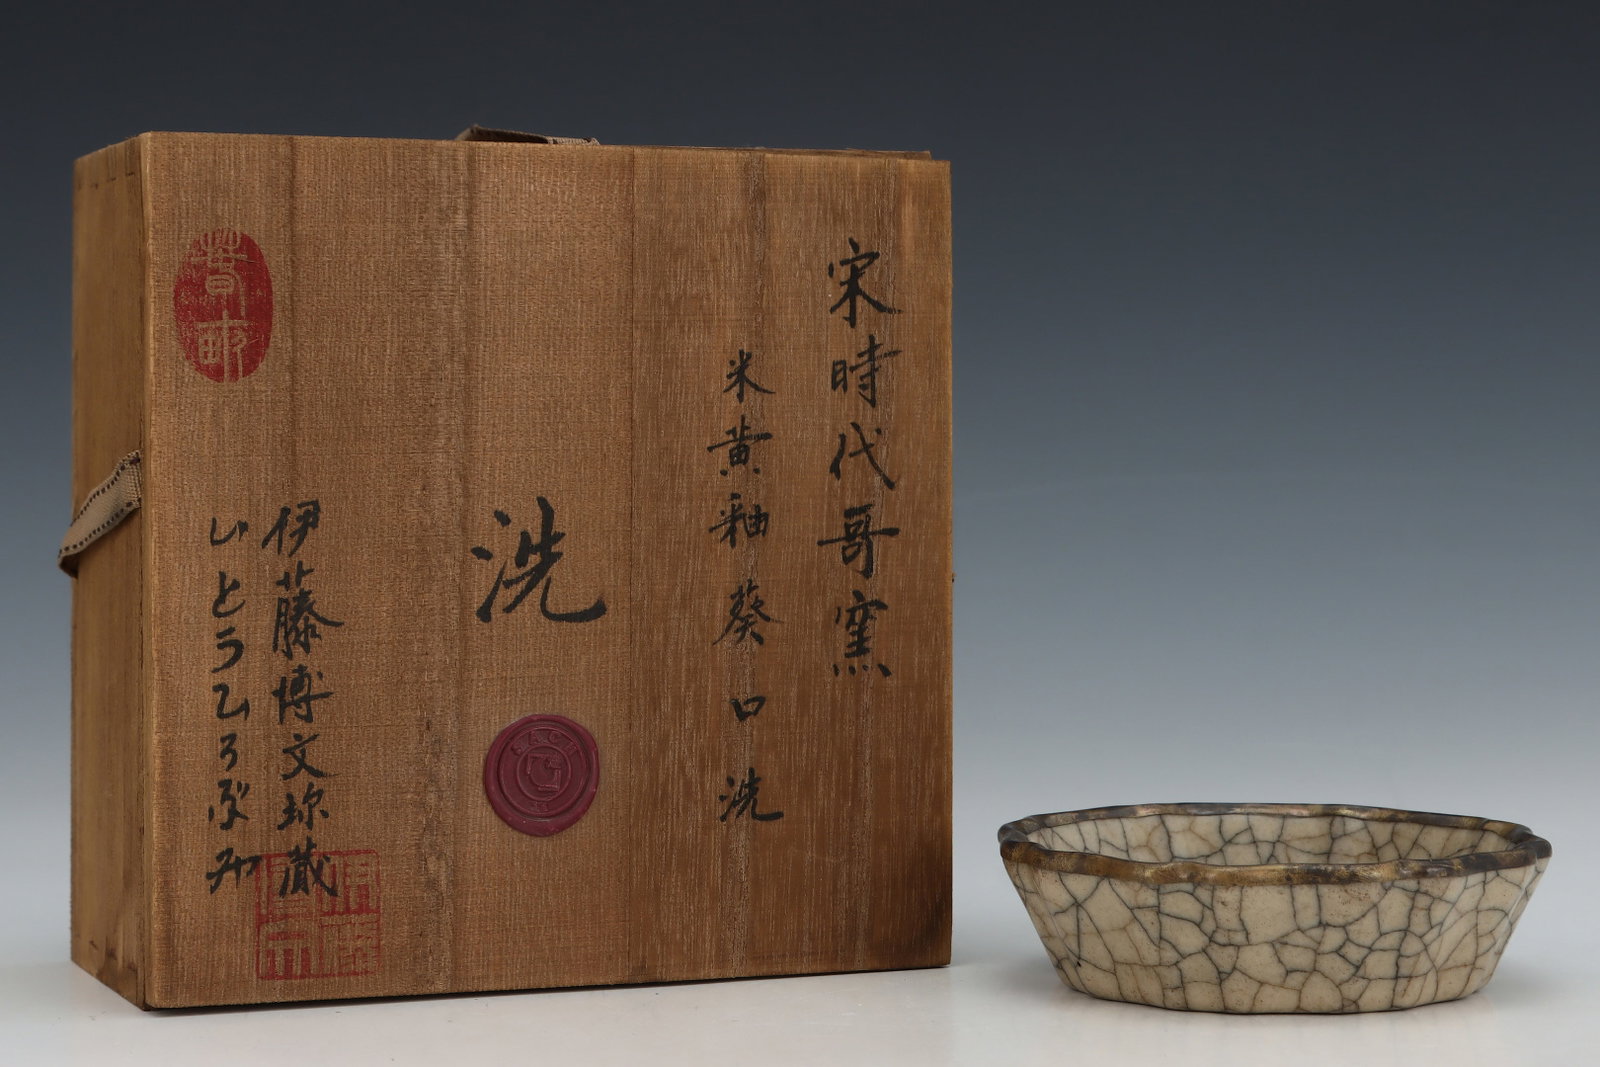 宋時代哥窯
米黄釉葵口洗
洗
伊藤博文珎蔵
いとうひろぶみ